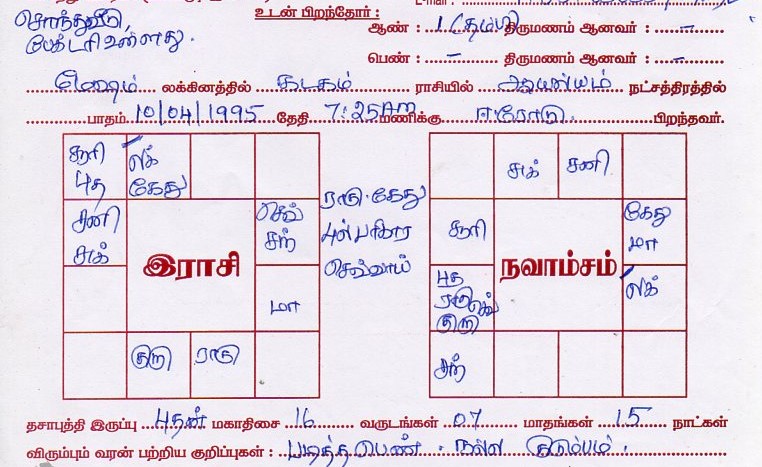 சொந்தவீடு,
உடன் பிறந்தோர் :
ஆண் : 1 (தம்பி) திருமணம் ஆனவர் : –
பேக்டரி உள்ளது.
பெண் : – திருமணம் ஆனவர் : –
மேஷம் லக்கினத்தில் கடகம் ராசியில் ஆயில்யம் நட்சத்திரத்தில்
பாதம் 10/04/1995 தேதி 7:25AM மணிக்கு ஈரோடு. பிறந்தவர்.
சூரி
புத
லக்
கேது
சனி
சுக்
செவ்
சந்
மா
குரு
ராகு
இராசி
ராகு. கேது
செவ்வாய்
சுக்
சனி
சூரி
கேது
மா
புத
ராகு செவ்
குரு
லக்
சந்
நவாம்சம்
தசாபுத்தி இருப்பு புதன் மகாதிசை 16 வருடங்கள் 07 மாதங்கள் 15 நாட்கள்
விரும்பும் வரன் பற்றிய குறிப்புகள் : படித்த பெண். நல்ல குடும்பம்.